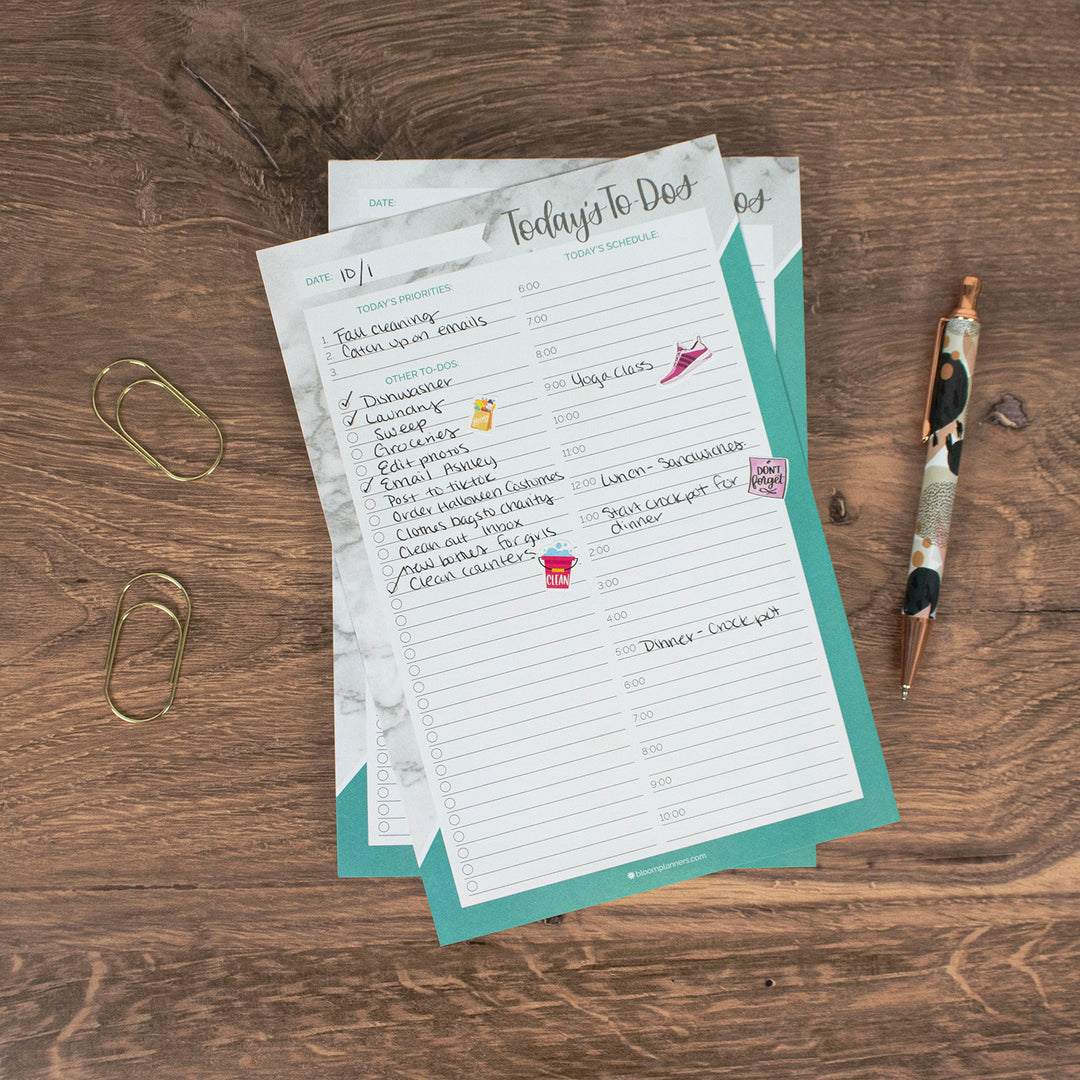 DATE:
os
Today's To-Dos
DATE: 10/1
TODAY'S PRIORITIES:
1. Fall cleaning
2. Catch up on emails
3.
OTHER TO-DOS:
Dishwasher
Laundry
Sweep
Groceries
Edit photos
Email Ashley
Post to tiktok
Order Halloween Costumes
Clothes bags to charity
Clean out inbox
new bottles for girls
Clean counters
CLEAN
TODAY'S SCHEDULE:
6:00
7:00
8:00
9:00 Yoga class
10:00
11:00
12:00 Lunch - Sandwiches
DON'T
forget
1:00 Start crockpot for
dinner
2:00
3:00
4:00
5:00 Dinner - Crock pot
6:00
7:00
8:00
9:00
10:00
bloomplanners.com